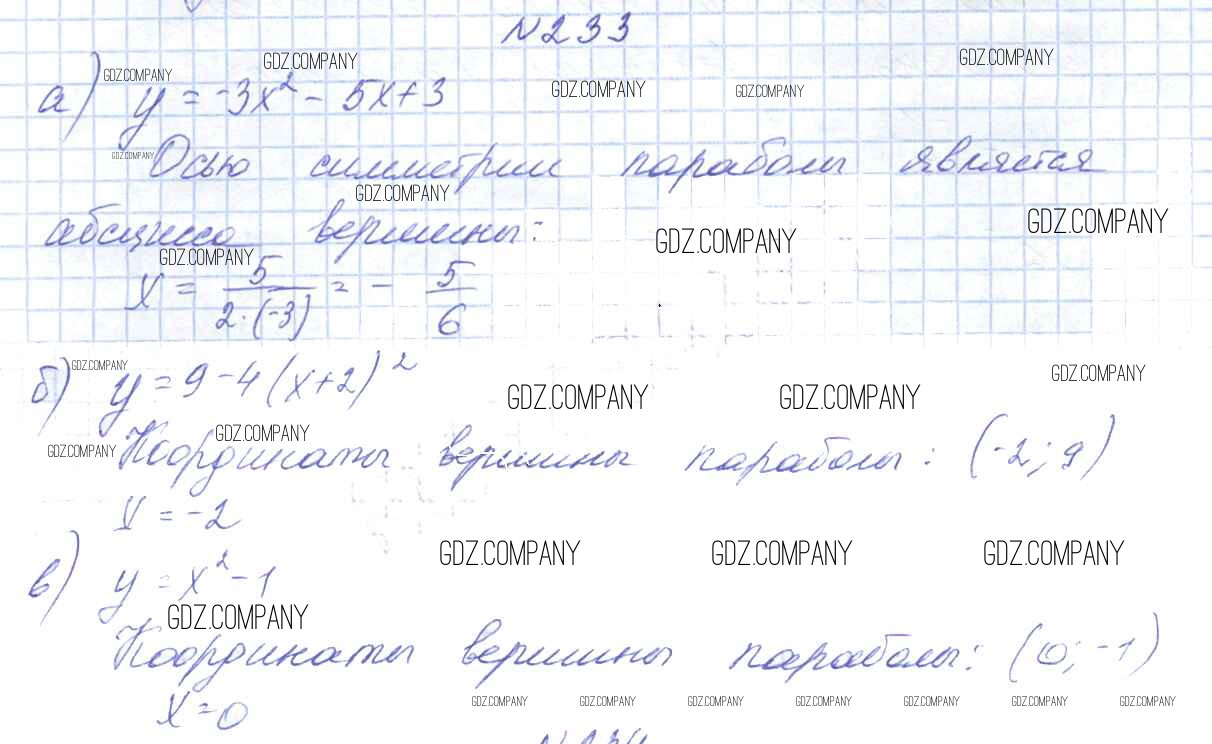 №233
GDZ.COMPANY GDZ.COMPANY GDZ.COMPANY GDZ.COMPANY GDZ.COMPANY
а) y = -3x² - 5x+3
GDZ.COMPANY
Осью симметрии параболы является
GDZ.COMPANY GDZ.COMPANY GDZ.COMPANY
абсцисса вершины:
GDZ.COMPANY
x = 5/(2·(-3)) = - 5/6
GDZ.COMPANY GDZ.COMPANY
б) y = 9-4(x+2)²
GDZ.COMPANY GDZ.COMPANY
GDZ.COMPANY GDZ.COMPANY
Координаты вершины параболы: (-2; 9)
x = -2
GDZ.COMPANY GDZ.COMPANY GDZ.COMPANY
в) y = x² - 1
GDZ.COMPANY
Координаты вершины параболы: (0; -1)
GDZ.COMPANY GDZ.COMPANY GDZ.COMPANY GDZ.COMPANY GDZ.COMPANY GDZ.COMPANY GDZ.COMPANY
x = 0